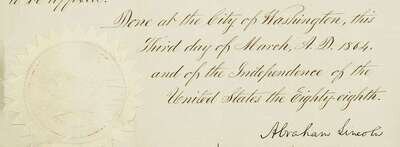 to be affixed.
Done at the City of Washington, this
Third day of March, A.D. 1864.
and of the Independence of the
United States the Eighty-eighth.
Abraham Lincoln